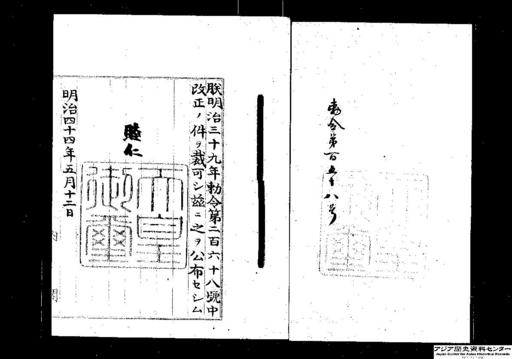 勅令第百五十八号
朕明治三十九年勅令第二百六十八號中
改正ノ件ヲ裁可シ茲ニ之ヲ公布セシム
睦仁
天皇御璽
明治四十四年五月十二日
内閣
アジア歴史資料センター
Japan Center for Asian Historical Records